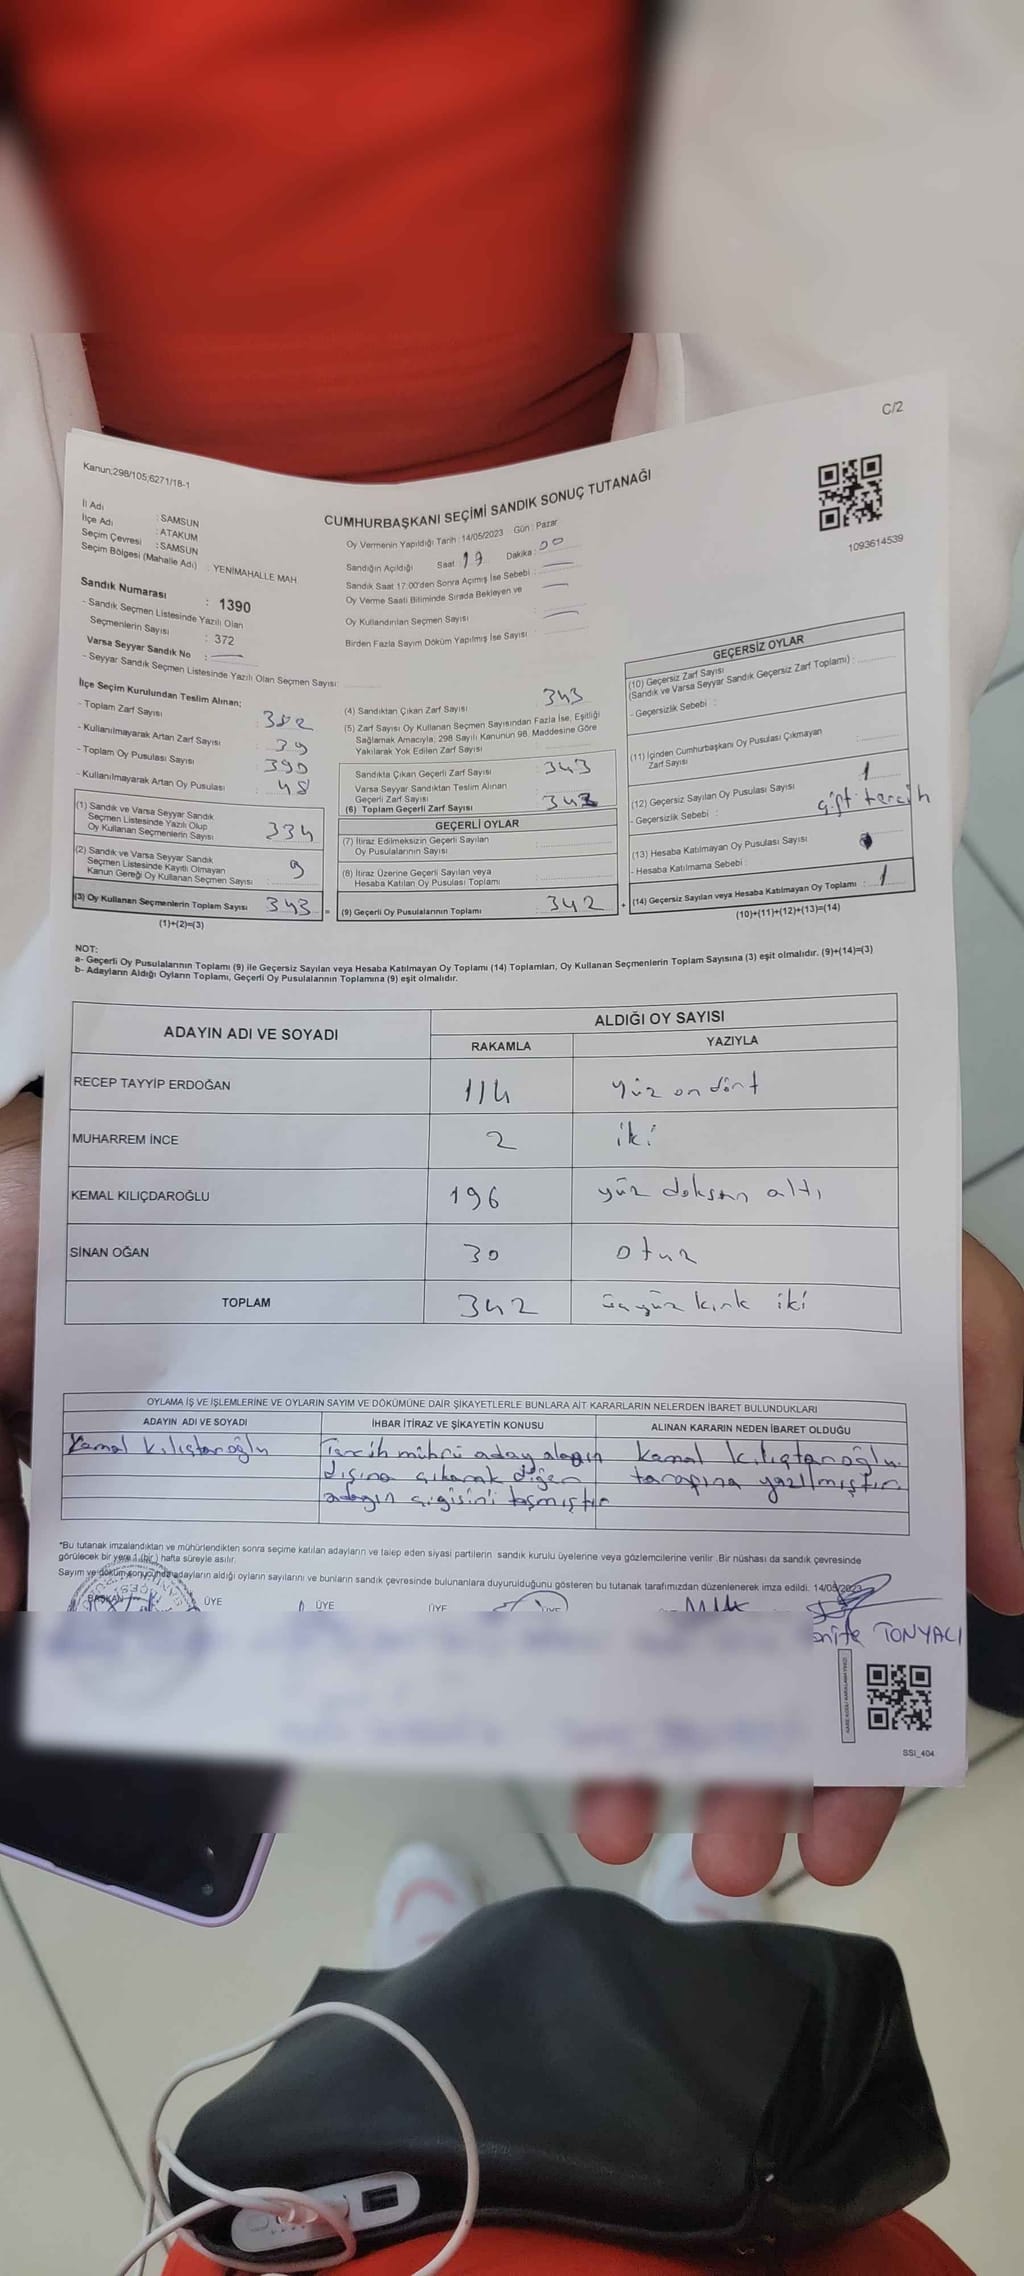 C/2
Kanun;298/105;6271/18-1
1093614539
CUMHURBAŞKANI SEÇİMİ SANDIK SONUÇ TUTANAĞI
İl Adı : SAMSUN
İlçe Adı : ATAKUM
Seçim Çevresi : SAMSUN
Seçim Bölgesi (Mahalle Adı) : YENİMAHALLE MAH
Sandık Numarası : 1390
- Sandık Seçmen Listesinde Yazılı Olan
Seçmenlerin Sayısı : 372
Varsa Seyyar Sandık No :
- Seyyar Sandık Seçmen Listesinde Yazılı Olan Seçmen Sayısı:
Oy Vermenin Yapıldığı Tarih : 14/05/2023 Gün : Pazar
Sandığın Açıldığı Saat : 17 Dakika : 00
Sandık Saat 17:00'den Sonra Açımış İse Sebebi :
Oy Verme Saati Bitiminde Sırada Bekleyen ve
Oy Kullandırılan Seçmen Sayısı :
Birden Fazla Sayım Döküm Yapılmış İse Sayısı :
İlçe Seçim Kurulundan Teslim Alınan;
- Toplam Zarf Sayısı : 382
- Kullanılmayarak Artan Zarf Sayısı : 39
- Toplam Oy Pusulası Sayısı : 390
- Kullanılmayarak Artan Oy Pusulası : 48
(1) Sandık ve Varsa Seyyar Sandık
Seçmen Listesinde Yazılı Olup
Oy Kullanan Seçmenlerin Sayısı : 334
(2) Sandık ve Varsa Seyyar Sandık
Seçmen Listesinde Kayıtlı Olmayan
Kanun Gereği Oy Kullanan Seçmen Sayısı : 9
(3) Oy Kullanan Seçmenlerin Toplam Sayısı 343
(1)+(2)=(3)
(4) Sandıktan Çıkan Zarf Sayısı : 343
(5) Zarf Sayısı Oy Kullanan Seçmen Sayısından Fazla İse, Eşitliği
Sağlamak Amacıyla; 298 Sayılı Kanunun 98. Maddesine Göre
Yakılarak Yok Edilen Zarf Sayısı :
Sandıkta Çıkan Geçerli Zarf Sayısı : 343
Varsa Seyyar Sandıktan Teslim Alınan
Geçerli Zarf Sayısı
(6) Toplam Geçerli Zarf Sayısı :
GEÇERLİ OYLAR
(7) İtiraz Edilmeksizin Geçerli Sayılan
Oy Pusulalarının Sayısı :
(8) İtiraz Üzerine Geçerli Sayılan veya
Hesaba Katılan Oy Pusulası Toplamı :
= (9) Geçerli Oy Pusulalarının Toplamı : 342 +
GEÇERSİZ OYLAR
(10) Geçersiz Zarf Sayısı
(Sandık ve Varsa Seyyar Sandık Geçersiz Zarf Toplamı) :
- Geçersizlik Sebebi :
(11) İçinden Cumhurbaşkanı Oy Pusulası Çıkmayan
Zarf Sayısı :
(12) Geçersiz Sayılan Oy Pusulası Sayısı : 1
- Geçersizlik Sebebi : çift tercih
(13) Hesaba Katılmayan Oy Pusulası Sayısı :
- Hesaba Katılmama Sebebi :
(14) Geçersiz Sayılan veya Hesaba Katılmayan Oy Toplamı : 1
(10)+(11)+(12)+(13)=(14)
NOT:
a- Geçerli Oy Pusulalarının Toplamı (9) ile Geçersiz Sayılan veya Hesaba Katılmayan Oy Toplamı (14) Toplamları, Oy Kullanan Seçmenlerin Toplam Sayısına (3) eşit olmalıdır. (9)+(14)=(3)
b- Adayların Aldığı Oyların Toplamı, Geçerli Oy Pusulalarının Toplamına (9) eşit olmalıdır.
ADAYIN ADI VE SOYADI ALDIĞI OY SAYISI
RAKAMLA YAZIYLA
RECEP TAYYİP ERDOĞAN 114 yüz on dört
MUHARREM İNCE 2 iki
KEMAL KILIÇDAROĞLU 196 yüz doksan altı
SİNAN OĞAN 30 otuz
TOPLAM 342 üçyüz kırk iki
OYLAMA İŞ VE İŞLEMLERİNE VE OYLARIN SAYIM VE DÖKÜMÜNE DAİR ŞİKAYETLERLE BUNLARA AİT KARARLARIN NELERDEN İBARET BULUNDUKLARI
ADAYIN ADI VE SOYADI İHBAR İTİRAZ VE ŞİKAYETİN KONUSU ALINAN KARARIN NEDEN İBARET OLDUĞU
Kemal Kılıçtaroğlu Tercih mührü aday alanın Kemal Kılıçtaroğlu
dışına çıkarak diğer tarafına yazılmıştır
adayın çizgisini taşmıştır
*Bu tutanak imzalandıktan ve mühürlendikten sonra seçime katılan adayların ve talep eden siyasi partilerin sandık kurulu üyelerine veya gözlemcilerine verilir .Bir nüshası da sandık çevresinde
görülecek bir yere 1 (bir ) hafta süreyle asılır.
Sayım ve döküm sonucunda adayların aldığı oyların sayılarını ve bunların sandık çevresinde bulunanlara duyurulduğunu gösteren bu tutanak tarafımızdan düzenlenerek imza edildi. 14/05/2023
BAŞKAN ÜYE ÜYE ÜYE ÜYE
TONYALI
SSI_404